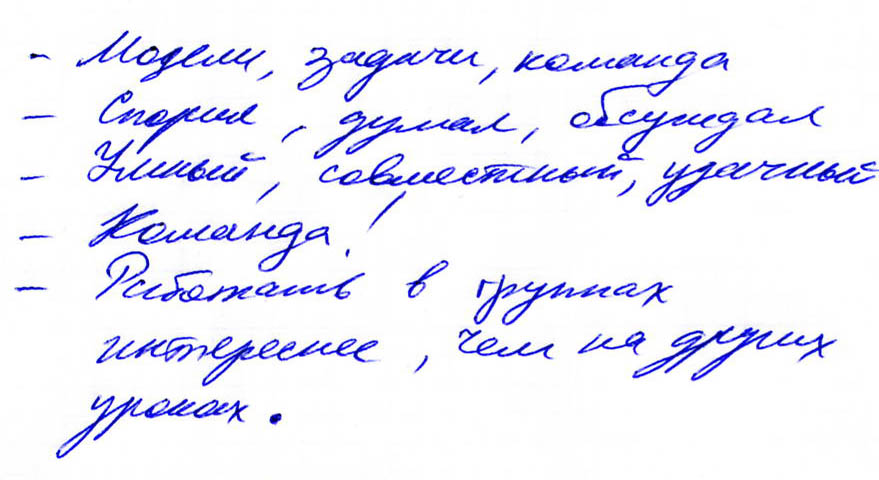 - Модели, задачи, команда
- Спорил, думал, обсуждал
- Умный, совместный, удачный
- Команда!
- Работать в группах
интереснее, чем на других
уроках.